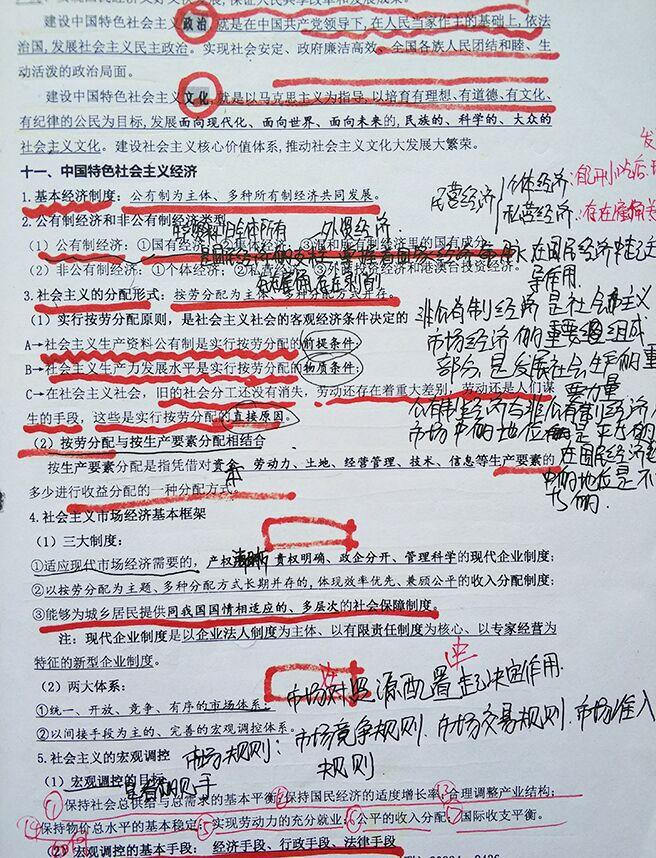 建设中国特色社会主义政治,就是在中国共产党领导下,在人民当家作主的基础上,依法
治国,发展社会主义民主政治。实现社会安定、政府廉洁高效、全国各族人民团结和睦、生
动活泼的政治局面。
建设中国特色社会主义文化,就是以马克思主义为指导,以培育有理想、有道德、有文化、
有纪律的公民为目标,发展面向现代化、面向世界、面向未来的,民族的、科学的、大众的
社会主义文化。建设社会主义核心价值体系,推动社会主义文化大发展大繁荣。
十一、中国特色社会主义经济
1.基本经济制度:公有制为主体、多种所有制经济共同发展。
民营经济
个体经济:
私营经济:
2.公有制经济和非公有制经济类型
外资经济
(1)公有制经济:①国有经济②集体经济;③混和所有制经济里的国有成分
(2)非公有制经济:①个体经济;②私营经济;③外商投资经济和港澳台投资经济。
3.社会主义的分配形式:按劳分配为主体、多种分配方式并存。
(1)实行按劳分配原则,是社会主义社会的客观经济条件决定的
非公有制经济是社会主义
A→社会主义生产资料公有制是实行按劳分配的前提条件;
市场经济的重要组成
B→社会主义生产力发展水平是实行按劳分配的物质条件;
部分,是发展社会生产的重
要力量
C→在社会主义社会,旧的社会分工还没有消失,劳动还存在着重大差别,劳动还是人们谋
生的手段,这些是实行按劳分配的直接原因。
公有制经济与非公有制经济
市场中的地位是平等的
(2)按劳分配与按生产要素分配相结合
按生产要素分配是指凭借对资本、劳动力、土地、经营管理、技术、信息等生产要素的
多少进行收益分配的一种分配方式。
4.社会主义市场经济基本框架
(1)三大制度:
①适应现代市场经济需要的,产权清晰、责权明确、政企分开、管理科学的现代企业制度;
②以按劳分配为主题、多种分配方式长期并存的,体现效率优先、兼顾公平的收入分配制度;
③能够为城乡居民提供同我国国情相适应的、多层次的社会保障制度。
注:现代企业制度是以企业法人制度为主体、以有限责任制度为核心、以专家经营为
特征的新型企业制度。
(2)两大体系:
市场对资源配置起决定作用.
①统一、开放、竞争、有序的市场体系;
②以间接手段为主的、完善的宏观调控体系。
市场规则:市场竞争规则.市场交易规则.市场准入
规则
5.社会主义的宏观调控
(1)宏观调控的目标
①保持社会总供给与总需求的基本平衡②保持国民经济的适度增长率③合理调整产业结构;
④保持物价总水平的基本稳定;⑤实现劳动力的充分就业;⑥公平的收入分配⑦国际收支平衡。
(2)宏观调控的基本手段:经济手段、行政手段、法律手段